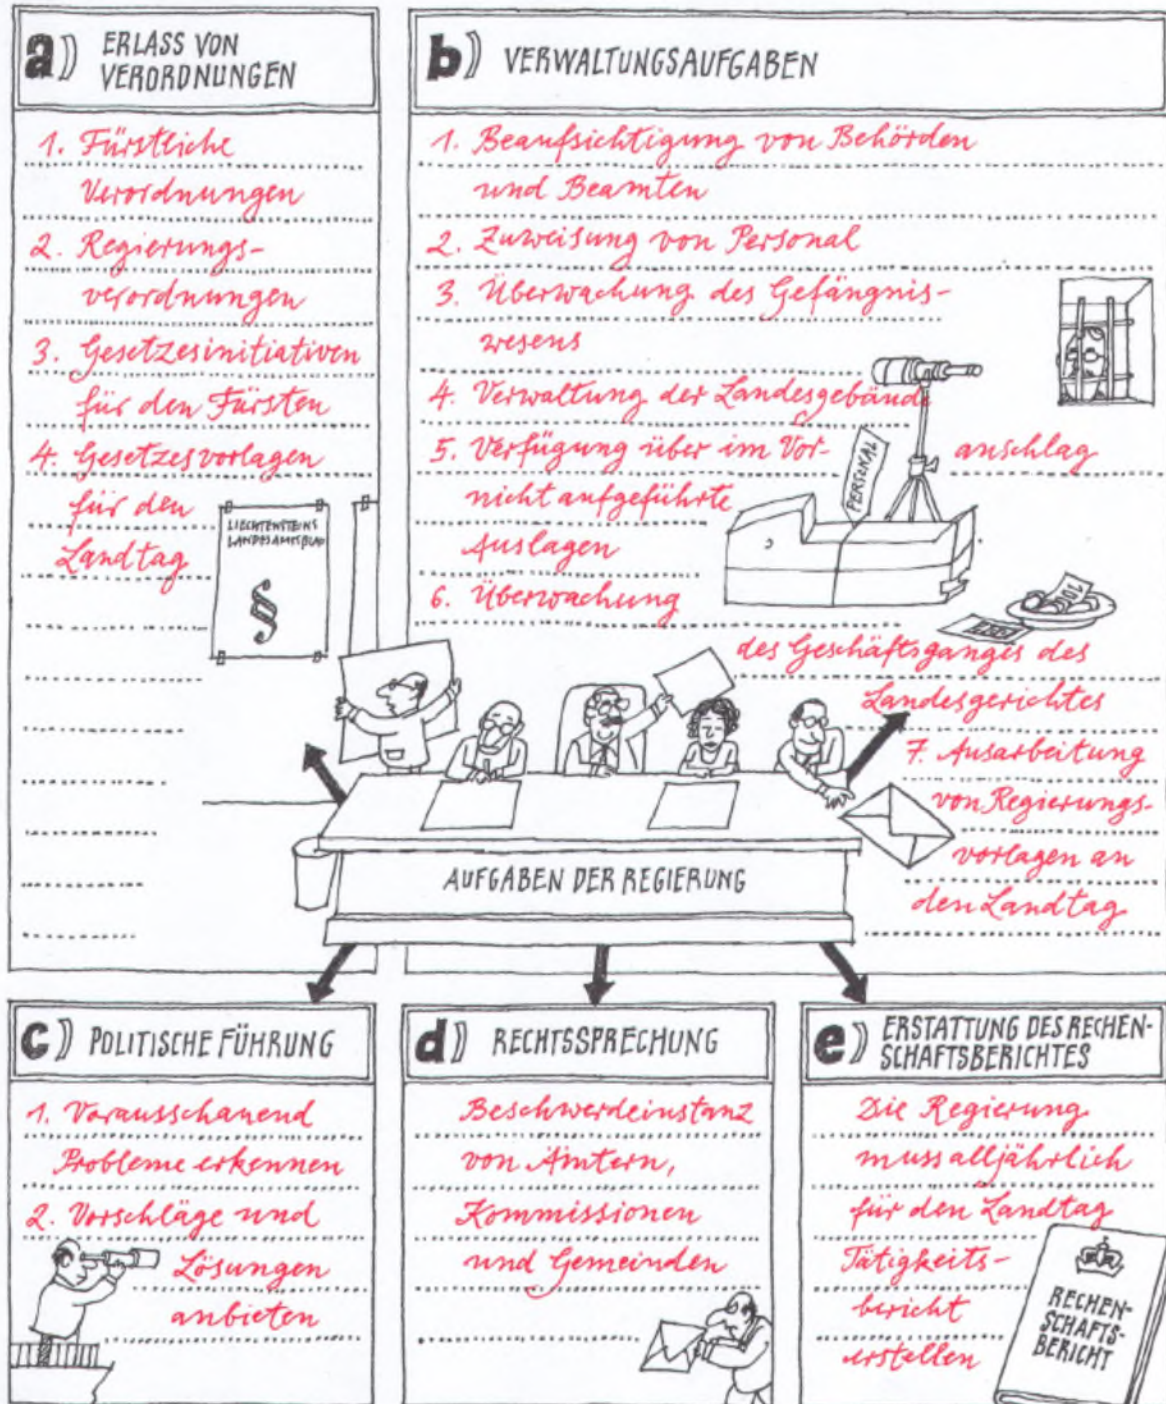 a) ERLASS VON
VERORDNUNGEN
1. Fürstliche
Verordnungen
2. Regierungs-
verordnungen
3. Gesetzesinitiativen
für den Fürsten
4. Gesetzesvorlagen
für den
Landtag
LIECHTENSTEINS
LANDESAMTSBLATT
§
b) VERWALTUNGSAUFGABEN
1. Beaufsichtigung von Behörden
und Beamten
2. Zuweisung von Personal
3. Überwachung des Gefängnis-
wesens
4. Verwaltung der Landesgebäude
5. Verfügung über im Vor-
anschlag
nicht aufgeführte
Auslagen
PERSONAL
6. Überwachung
des Geschäftsganges des
Landesgerichtes
7. Ausarbeitung
von Regierungs-
vorlagen an
den Landtag
AUFGABEN DER REGIERUNG
c) POLITISCHE FÜHRUNG
1. Vorausschauend
Probleme erkennen
2. Vorschläge und
Lösungen
anbieten
d) RECHTSSPRECHUNG
Beschwerdeinstanz
von Ämtern,
Kommissionen
und Gemeinden
e) ERSTATTUNG DES RECHEN-
SCHAFTSBERICHTES
Die Regierung
muss alljährlich
für den Landtag
Tätigkeits-
bericht
erstellen
RECHEN-
SCHAFTS-
BERICHT